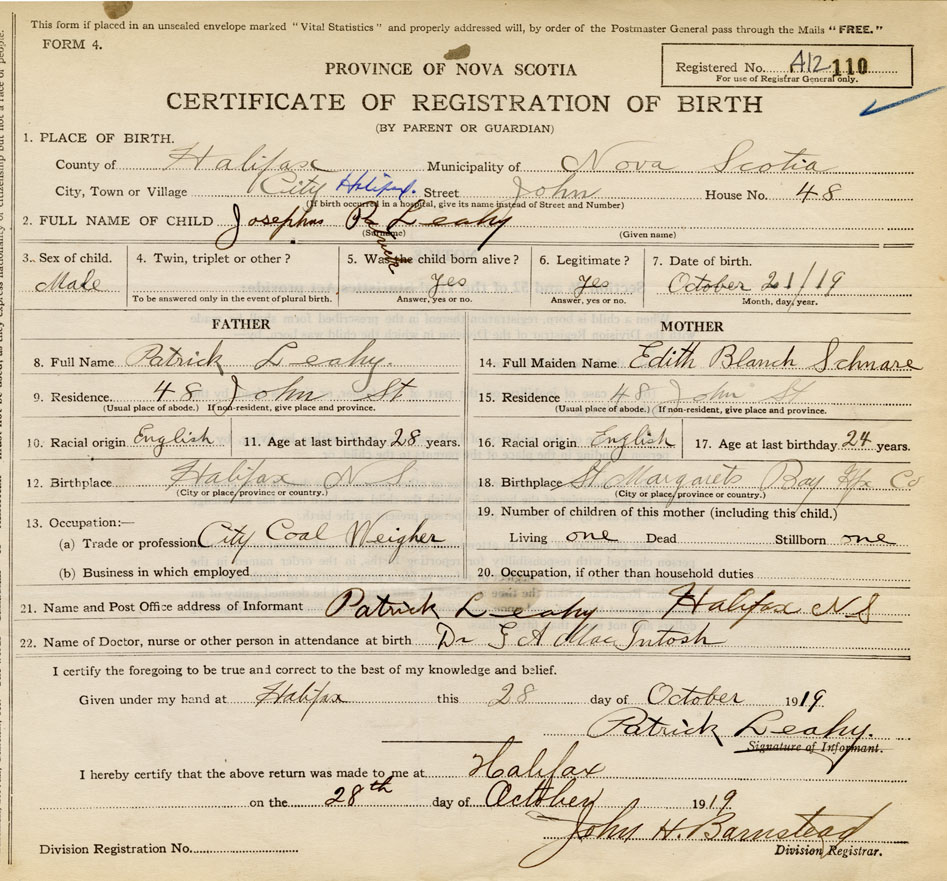 This form if placed in an unsealed envelope marked "Vital Statistics" and properly addressed will, by order of the Postmaster General pass through the Mails "FREE."
FORM 4.
Registered No. A12 110
For use of Registrar General only.
PROVINCE OF NOVA SCOTIA
CERTIFICATE OF REGISTRATION OF BIRTH
(BY PARENT OR GUARDIAN)
1. PLACE OF BIRTH.
County of Halifax Municipality of Nova Scotia
City, Town or Village City Halifax. Street John House No. 48
(If birth occurred in a hospital, give its name instead of Street and Number)
2. FULL NAME OF CHILD Josephus Patrick Leahy
(Surname) (Given name)
3. Sex of child. 4. Twin, triplet or other? 5. Was the child born alive? 6. Legitimate? 7. Date of birth.
Male Yes Yes October 21/19
To be answered only in the event of plural birth. Answer, yes or no. Answer, yes or no. Month, day, year.
FATHER MOTHER
8. Full Name Patrick Leahy. 14. Full Maiden Name Edith Blanch Schnare
9. Residence 48 John St 15. Residence 48 John St
(Usual place of abode.) If non-resident, give place and province. (Usual place of abode.) If non-resident, give place and province.
10. Racial origin English 11. Age at last birthday 28 years. 16. Racial origin English 17. Age at last birthday 24 years.
12. Birthplace Halifax N S 18. Birthplace St Margarets Bay Hfx Co
(City or place, province or country.) (City or place, province or country.)
13. Occupation:— 19. Number of children of this mother (including this child.)
(a) Trade or profession City Coal Weigher Living one Dead Stillborn one
(b) Business in which employed 20. Occupation, if other than household duties
21. Name and Post Office address of Informant Patrick Leahy Halifax N S
22. Name of Doctor, nurse or other person in attendance at birth Dr G A MacIntosh
I certify the foregoing to be true and correct to the best of my knowledge and belief.
Given under my hand at Halifax this 28 day of October 1919
Patrick Leahy.
Signature of Informant.
I hereby certify that the above return was made to me at Halifax
on the 28th day of October 1919
John H. Barnstead
Division Registrar.
Division Registration No.